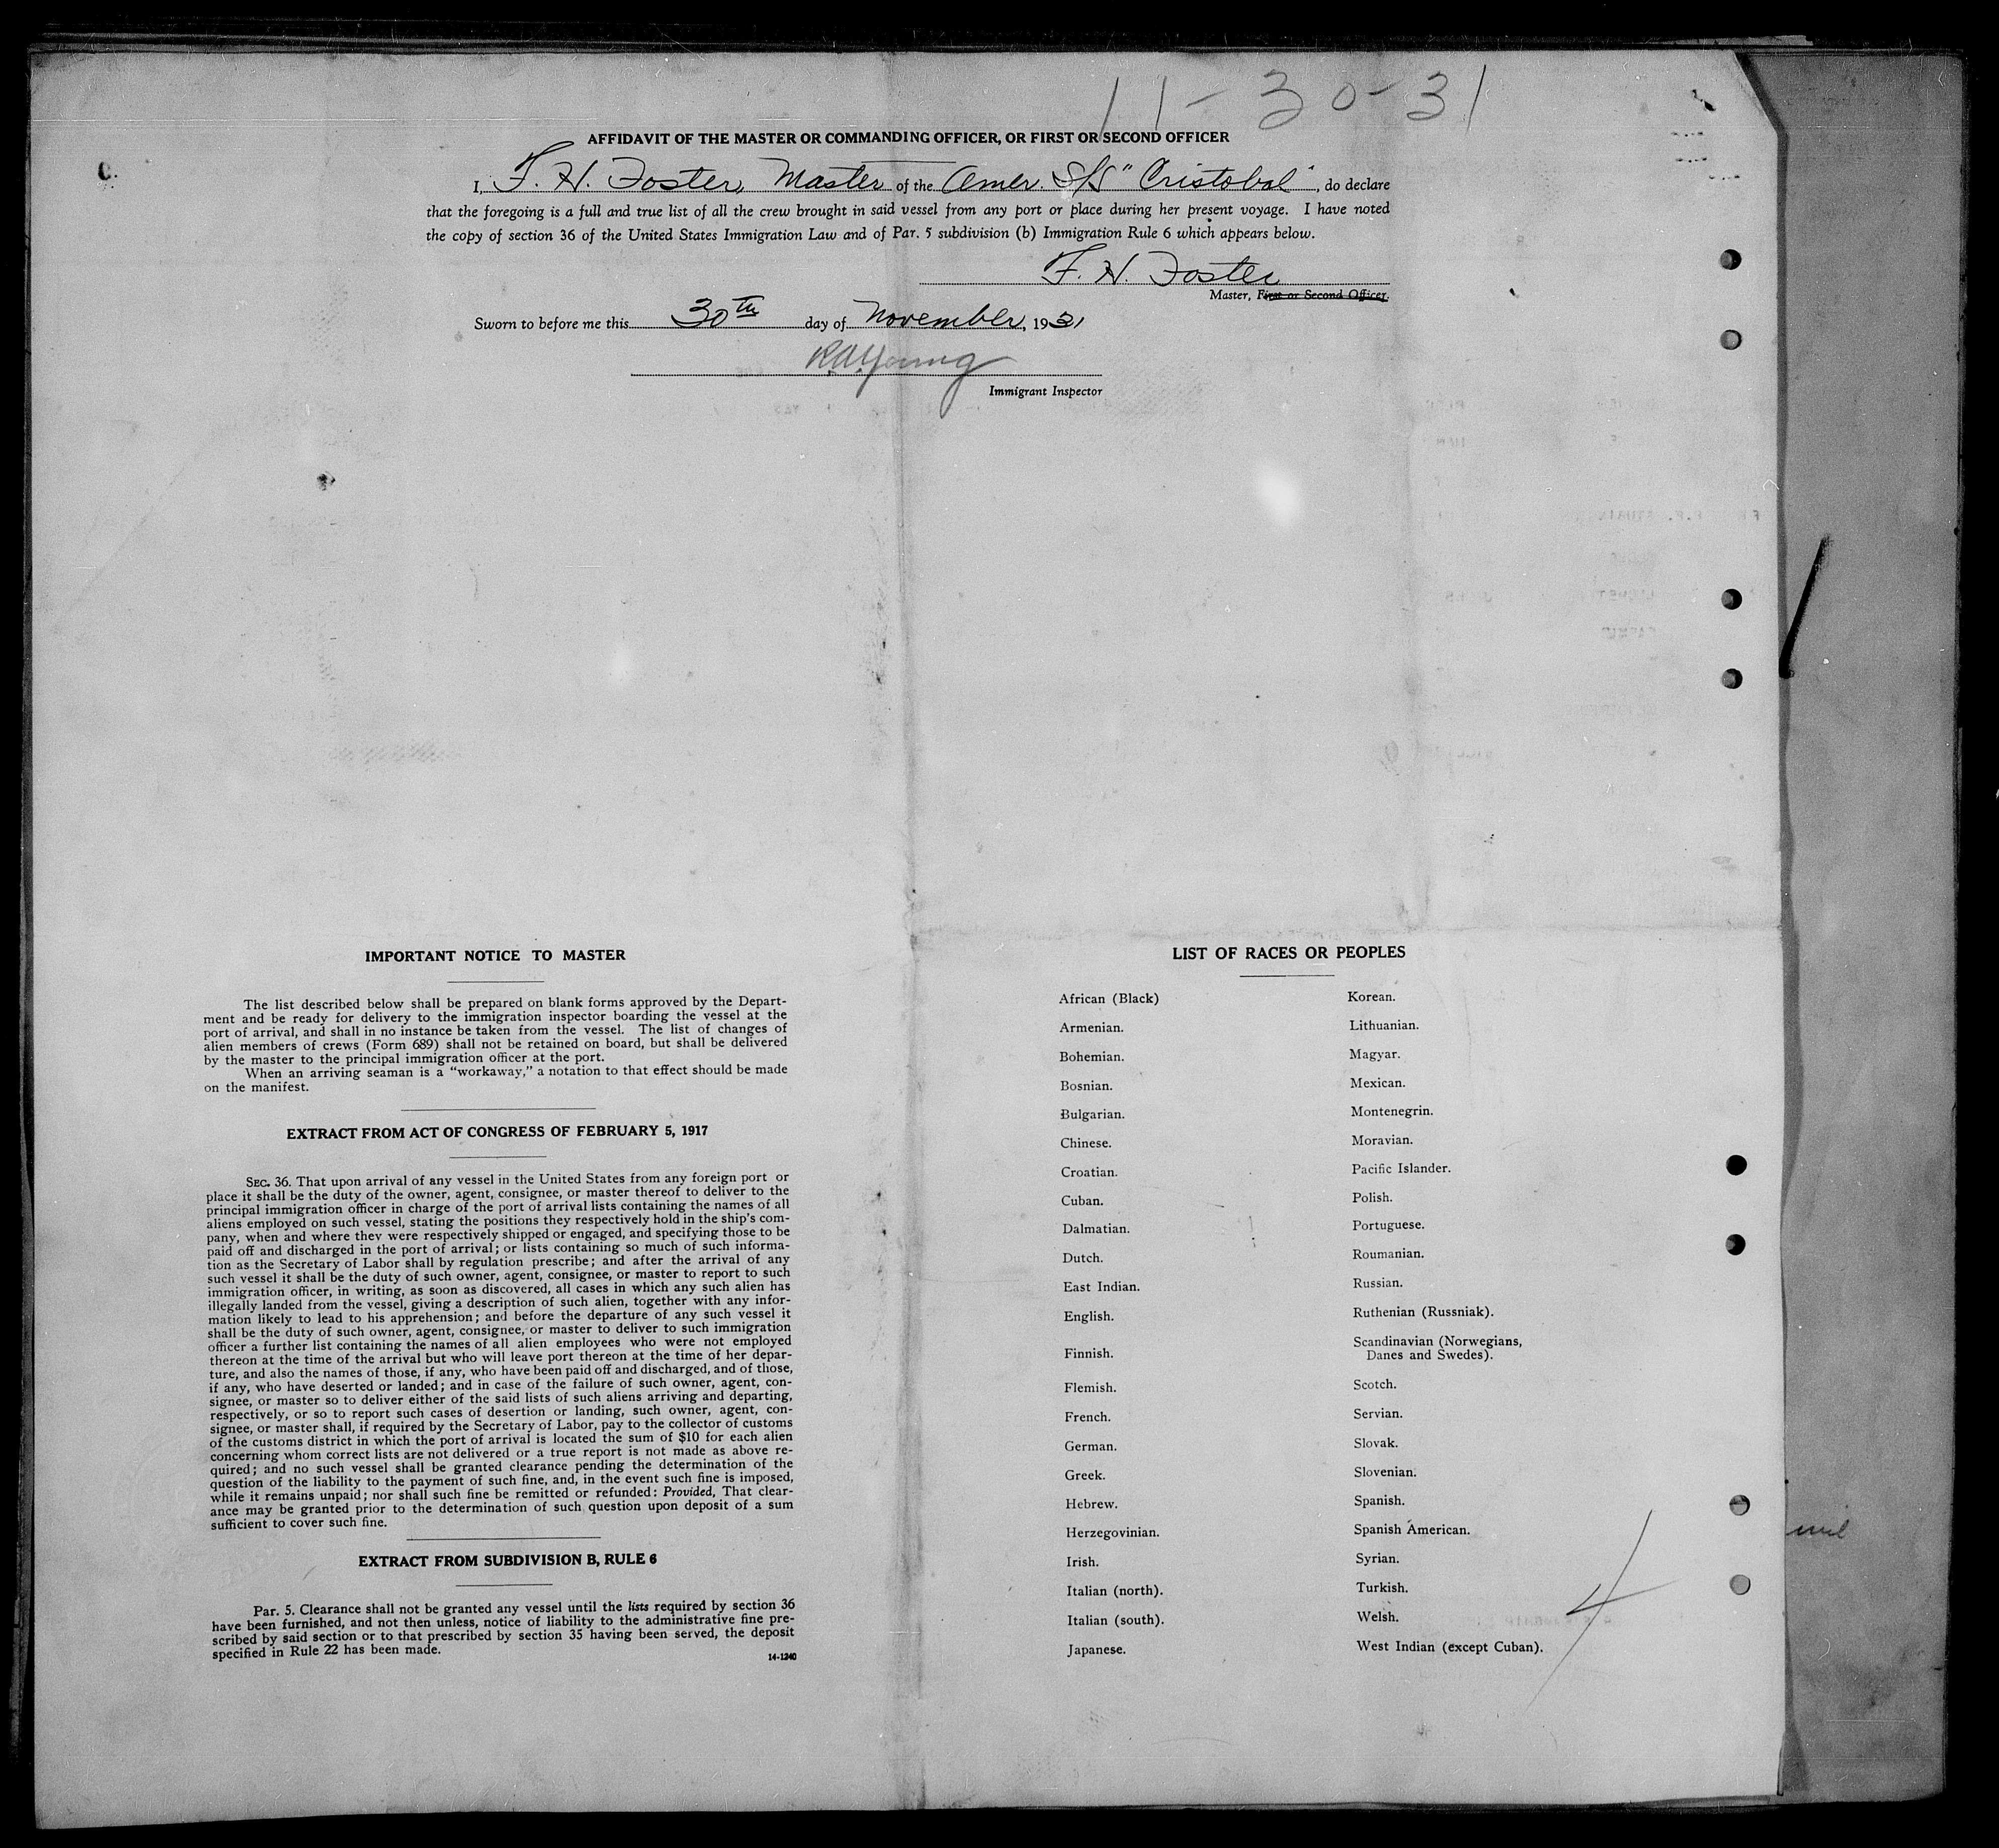 11-30-31
AFFIDAVIT OF THE MASTER OR COMMANDING OFFICER, OR FIRST OR SECOND OFFICER
I, F. H. Foster, Master of the Amer. S/S "Cristobal", do declare
that the foregoing is a full and true list of all the crew brought in said vessel from any port or place during her present voyage. I have noted
the copy of section 36 of the United States Immigration Law and of Par. 5 subdivision (b) Immigration Rule 6 which appears below.
F. H. Foster
Master, First or Second Officer.
Sworn to before me this 30th day of November, 1931
R.A. Young
Immigrant Inspector
IMPORTANT NOTICE TO MASTER
The list described below shall be prepared on blank forms approved by the Depart-
ment and be ready for delivery to the immigration inspector boarding the vessel at the
port of arrival, and shall in no instance be taken from the vessel. The list of changes of
alien members of crews (Form 689) shall not be retained on board, but shall be delivered
by the master to the principal immigration officer at the port.
When an arriving seaman is a "workaway," a notation to that effect should be made
on the manifest.
EXTRACT FROM ACT OF CONGRESS OF FEBRUARY 5, 1917
SEC. 36. That upon arrival of any vessel in the United States from any foreign port or
place it shall be the duty of the owner, agent, consignee, or master thereof to deliver to the
principal immigration officer in charge of the port of arrival lists containing the names of all
aliens employed on such vessel, stating the positions they respectively hold in the ship's com-
pany, when and where they were respectively shipped or engaged, and specifying those to be
paid off and discharged in the port of arrival; or lists containing so much of such informa-
tion as the Secretary of Labor shall by regulation prescribe; and after the arrival of any
such vessel it shall be the duty of such owner, agent, consignee, or master to report to such
immigration officer, in writing, as soon as discovered, all cases in which any such alien has
illegally landed from the vessel, giving a description of such alien, together with any infor-
mation likely to lead to his apprehension; and before the departure of any such vessel it
shall be the duty of such owner, agent, consignee, or master to deliver to such immigration
officer a further list containing the names of all alien employees who were not employed
thereon at the time of the arrival but who will leave port thereon at the time of her depar-
ture, and also the names of those, if any, who have been paid off and discharged, and of those,
if any, who have deserted or landed; and in case of the failure of such owner, agent, con-
signee, or master so to deliver either of the said lists of such aliens arriving and departing,
respectively, or so to report such cases of desertion or landing, such owner, agent, con-
signee, or master shall, if required by the Secretary of Labor, pay to the collector of customs
of the customs district in which the port of arrival is located the sum of $10 for each alien
concerning whom correct lists are not delivered or a true report is not made as above re-
quired; and no such vessel shall be granted clearance pending the determination of the
question of the liability to the payment of such fine, and, in the event such fine is imposed,
while it remains unpaid; nor shall such fine be remitted or refunded: Provided, That clear-
ance may be granted prior to the determination of such question upon deposit of a sum
sufficient to cover such fine.
EXTRACT FROM SUBDIVISION B, RULE 6
Par. 5. Clearance shall not be granted any vessel until the lists required by section 36
have been furnished, and not then unless, notice of liability to the administrative fine pre-
scribed by said section or to that prescribed by section 35 having been served, the deposit
specified in Rule 22 has been made.
14-1240
LIST OF RACES OR PEOPLES
African (Black)
Armenian.
Bohemian.
Bosnian.
Bulgarian.
Chinese.
Croatian.
Cuban.
Dalmatian.
Dutch.
East Indian.
English.
Finnish.
Flemish.
French.
German.
Greek.
Hebrew.
Herzegovinian.
Irish.
Italian (north).
Italian (south).
Japanese.
Korean.
Lithuanian.
Magyar.
Mexican.
Montenegrin.
Moravian.
Pacific Islander.
Polish.
Portuguese.
Roumanian.
Russian.
Ruthenian (Russniak).
Scandinavian (Norwegians,
Danes and Swedes).
Scotch.
Servian.
Slovak.
Slovenian.
Spanish.
Spanish American.
Syrian.
Turkish.
Welsh.
West Indian (except Cuban).
4